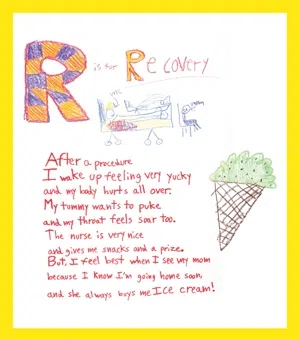 R is for Recovery
me
mom
After a procedure
I wake up feeling very yucky
and my body hurts all over.
My tummy wants to puke
and my throat feels soar too.
The nurse is very nice
and gives me snacks and a prize.
But, I feel best when I see my mom
because I know I'm going home soon
and she always buys me Ice cream!